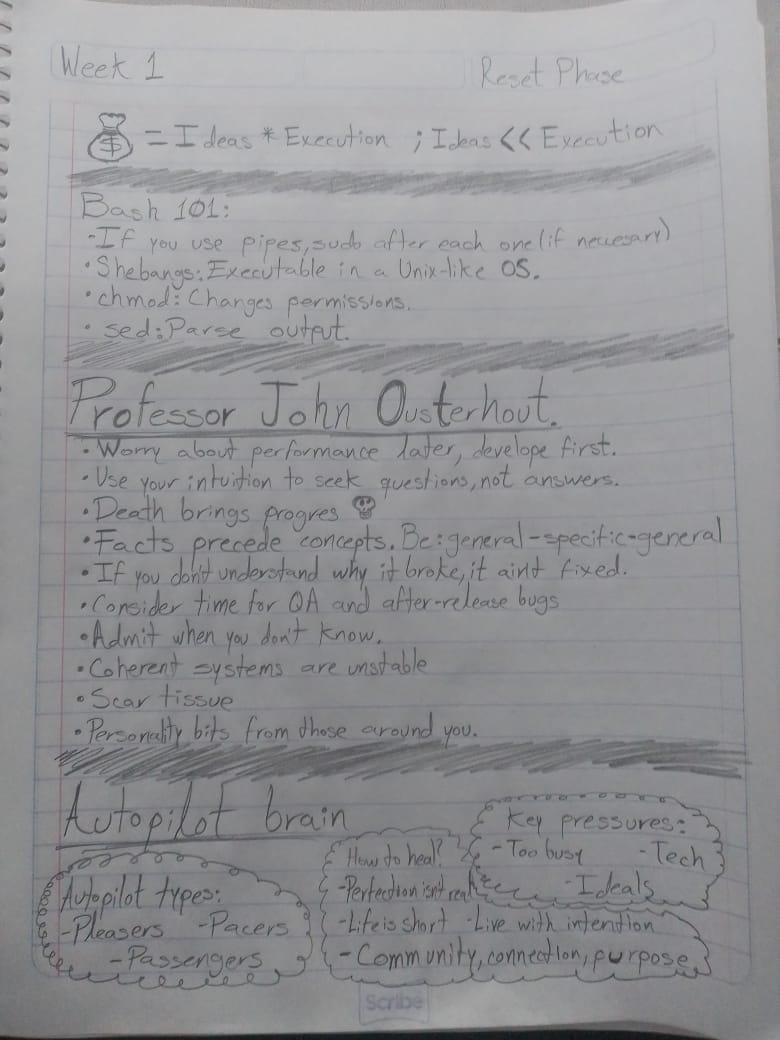 Week 1
Reset Phase
$ = Ideas * Execution ; Ideas << Execution
Bash 101:
-If you use pipes, sudo after each one (if neccesary)
• Shebangs: Executable in a Unix-like OS.
• chmod: Changes permissions.
• sed: Parse output.
Professor John Ousterhout.
• Worry about performance later, develope first.
• Use your intuition to seek questions, not answers.
• Death brings progres
• Facts precede concepts. Be: general-specific-general
• If you don't understand why it broke, it ain't fixed.
• Consider time for QA and after-release bugs
• Admit when you don't know.
• Coherent systems are unstable
• Scar tissue
• Personality bits from those around you.
Autopilot brain
Autopilot types:
-Pleasers -Pacers
-Passengers
How to heal?
-Perfection isn't real
-Life is short -Live with intention
-Community, connection, purpose
Key pressures:
-Too busy -Tech
-Ideals
Scribe